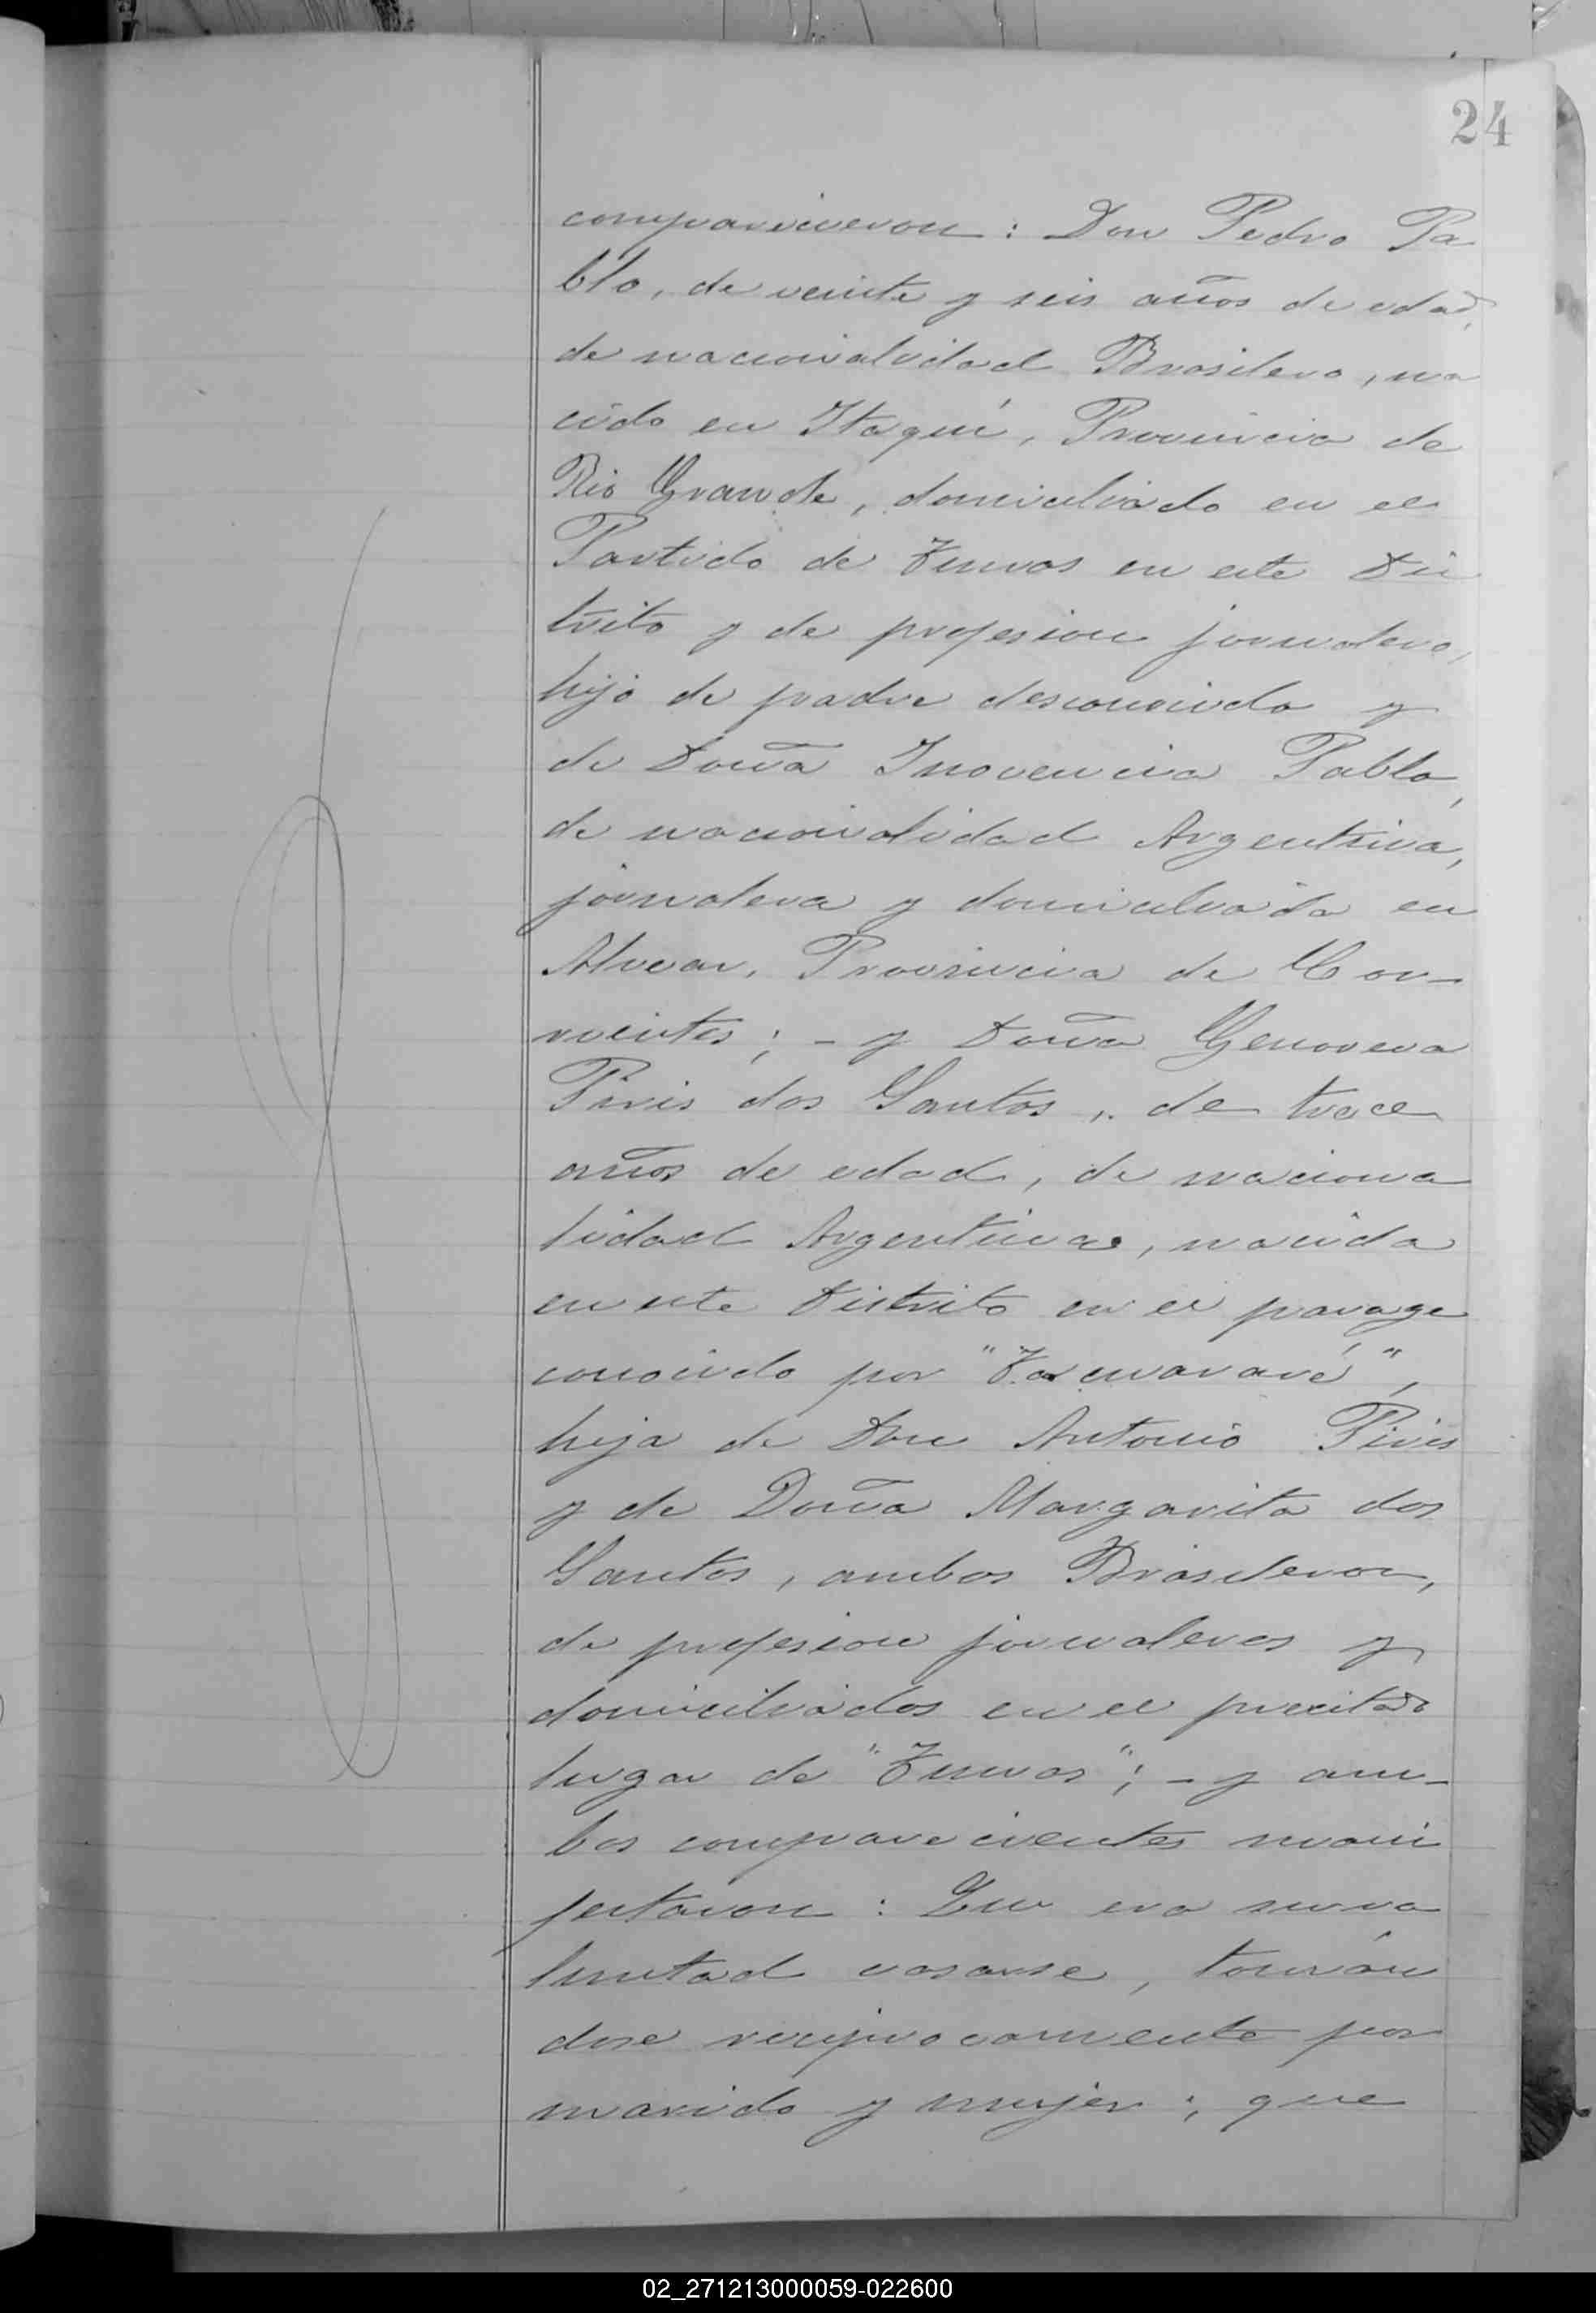 24
comparecieron: Don Pedro Pa
blo, de veinte y seis años de edad,
de nacionalidad Brasilero, na
cido en Itaquí, Provincia de
Rio Grande, domiciliado en el
Partido de Tunas en este Dis
trito y de profesion jornalero,
hijo de padre desconocido y
de Doña Inocencia Pablo,
de nacionalidad Argentina,
jornalera y domiciliada en
Alvear, Provincia de Cor-
rientes; - y Doña Genoveva
Piris dos Santos, de trece
años de edad, de naciona
lidad Argentina, nacida
en este Distrito en el parage
conocido por
hija de Don Antonio Piris
y de Doña Margarita dos
Santos, ambos Brasileros,
de profesion jornaleros y
domiciliados en el precitado
lugar de "Tunas"; - y am-
bos comparecientes mani
festaron: Que era su vo
luntad casarse, tomán
dose reciprocamente por
marido y mujer; que
02_271213000059-022600